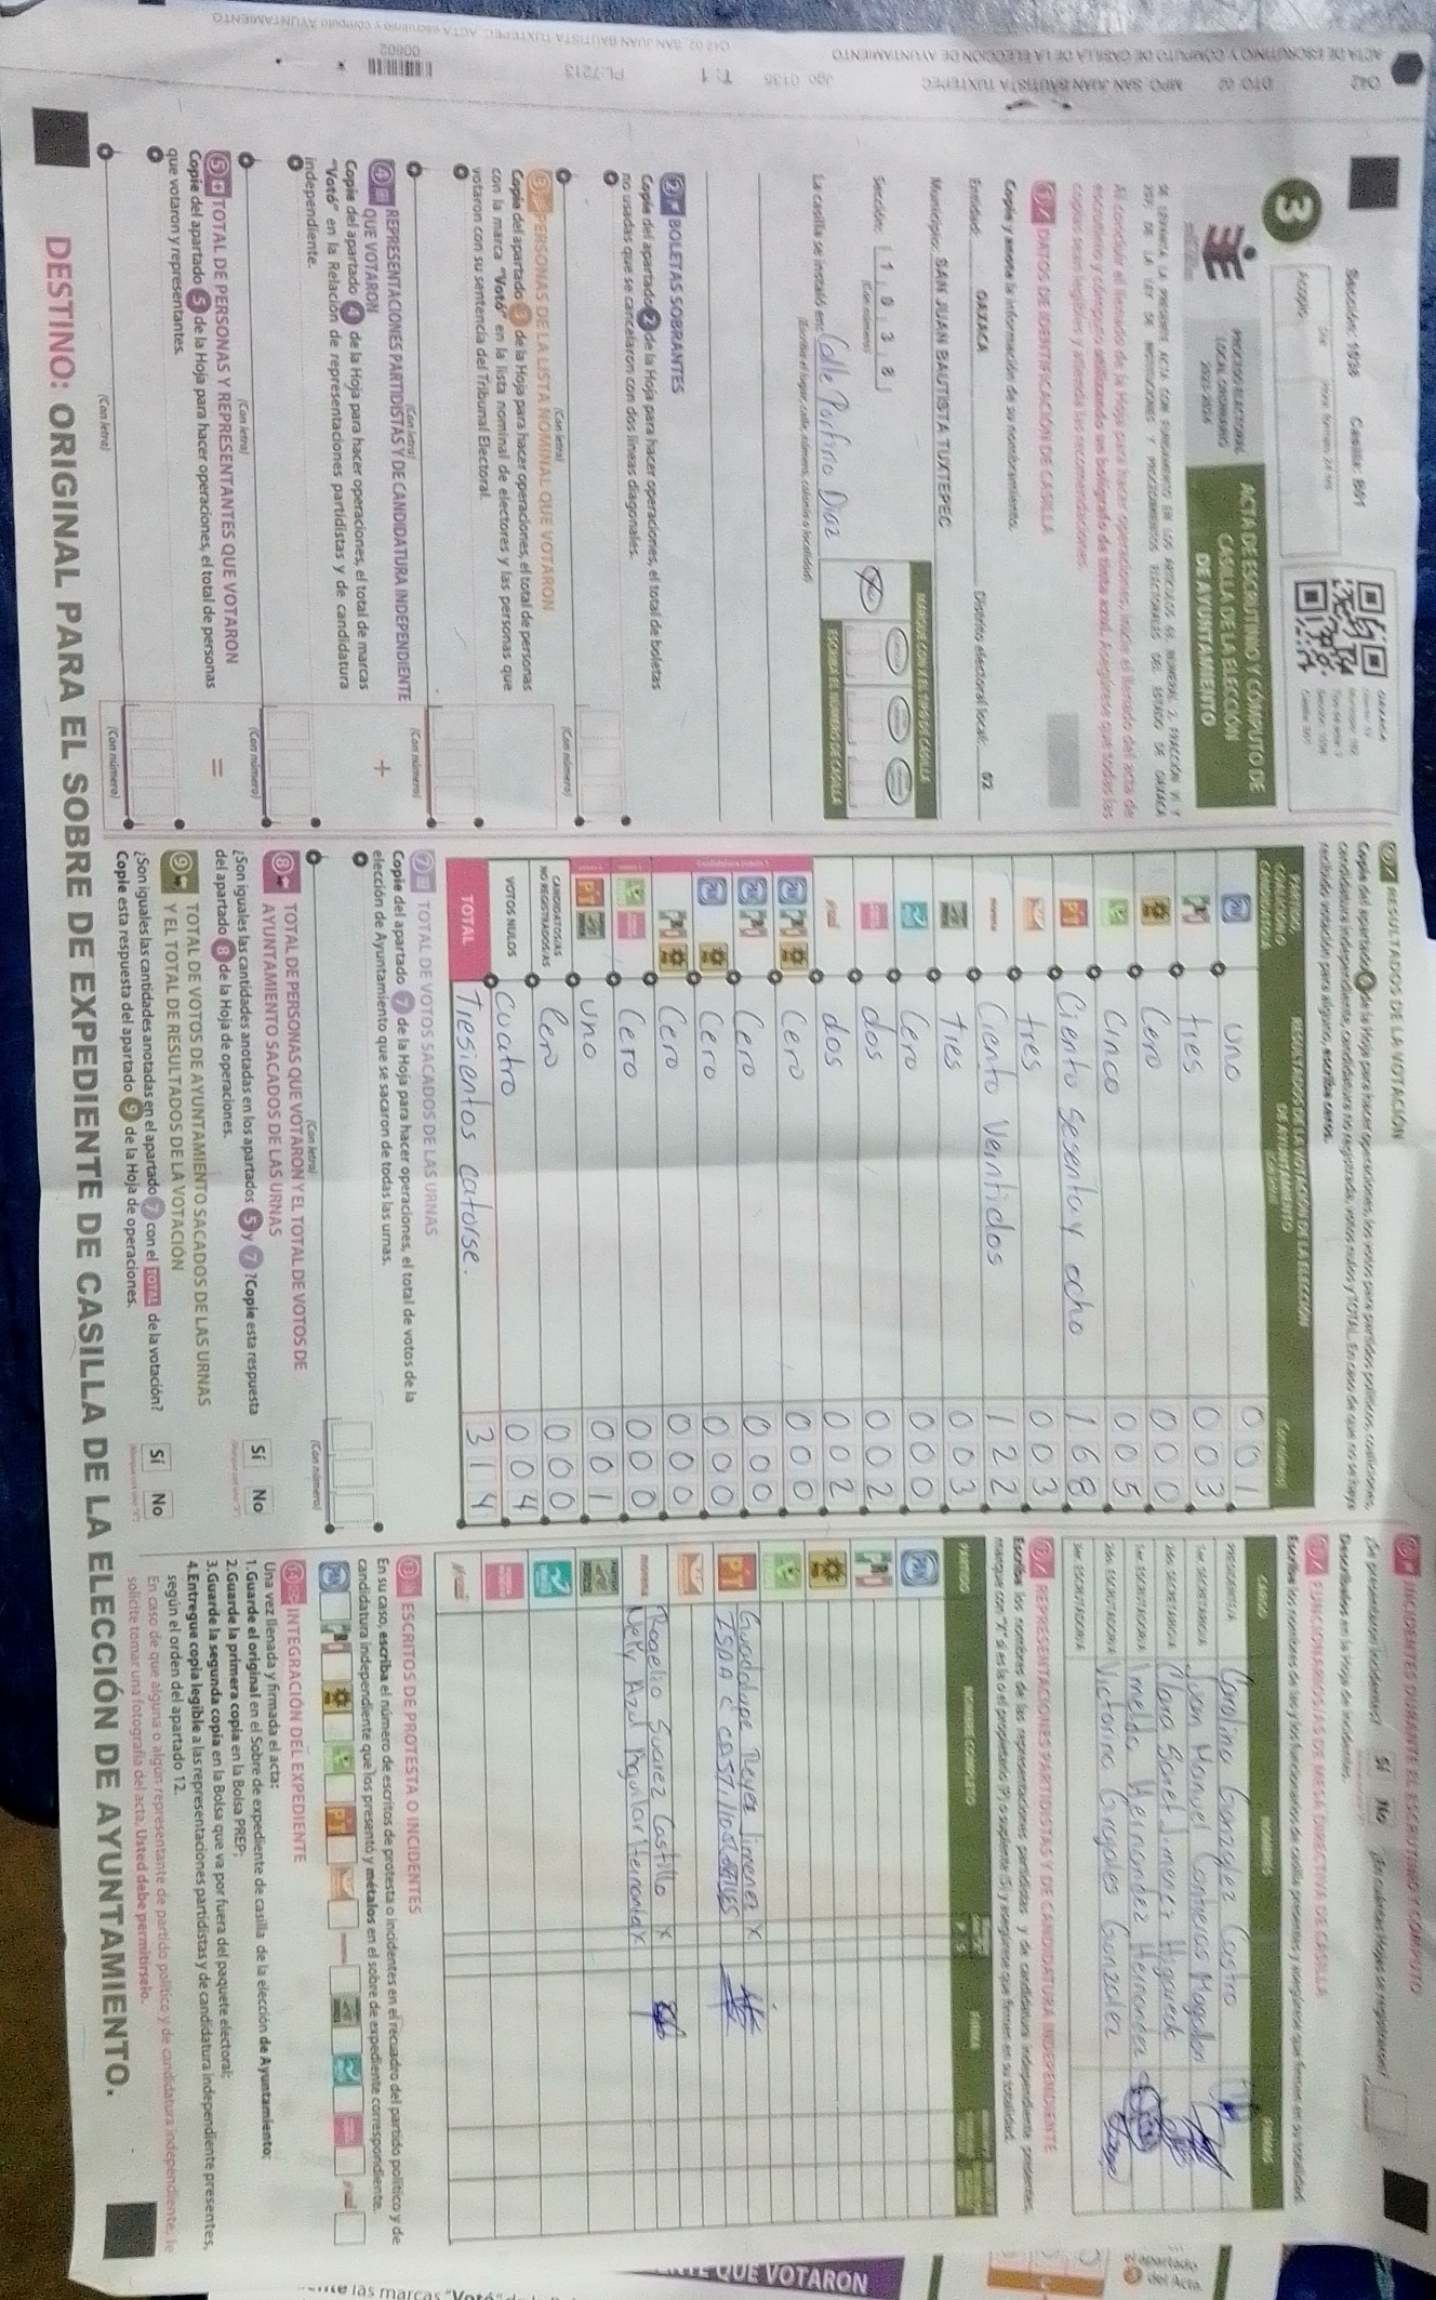 Sección: 1038 Casilla: B01
3
PROCESO ELECTORAL
LOCAL ORDINARIO
2023-2024
ACTA DE ESCRUTINIO Y CÓMPUTO DE
CASILLA DE LA ELECCIÓN
DE AYUNTAMIENTO
Al concluir el llenado de la Hoja para hacer operaciones, inicie el llenado del acta de
escrutinio y cómputo utilizando un bolígrafo de tinta azul. Asegúrese que todas las
copias sean legibles y atienda las recomendaciones.
1 DATOS DE IDENTIFICACIÓN DE CASILLA
Copie y anote la información de su nombramiento.
Entidad: OAXACA Distrito electoral local: 02
Municipio: SAN JUAN BAUTISTA TUXTEPEC
Sección: 1 0 3 8
(Con número)
MARQUE CON X EL TIPO DE CASILLA
ESCRIBA EL NÚMERO DE CASILLA
La casilla se instaló en: Calle Porfirio Diaz
(Escriba el lugar, calle, número, colonia o localidad)
2 BOLETAS SOBRANTES
Copie del apartado 2 de la Hoja para hacer operaciones, el total de boletas
no usadas que se cancelaron con dos líneas diagonales.
(Con letra) (Con número)
3 PERSONAS DE LA LISTA NOMINAL QUE VOTARON
Copie del apartado 3 de la Hoja para hacer operaciones, el total de personas
con la marca "Votó" en la lista nominal de electores y las personas que
votaron con su sentencia del Tribunal Electoral.
(Con letra) (Con número)
4 REPRESENTACIONES PARTIDISTAS Y DE CANDIDATURA INDEPENDIENTE
QUE VOTARON
Copie del apartado 4 de la Hoja para hacer operaciones, el total de marcas
"Votó" en la Relación de representaciones partidistas y de candidatura
independiente.
+
(Con letra) (Con número)
5 TOTAL DE PERSONAS Y REPRESENTANTES QUE VOTARON
Copie del apartado 5 de la Hoja para hacer operaciones, el total de personas
que votaron y representantes.
=
(Con letra) (Con número)
RESULTADOS DE LA VOTACIÓN
Copie del apartado 6 de la Hoja para hacer operaciones, los votos para partidos políticos, coaliciones,
candidatura independiente, candidatura no registrada, votos nulos y TOTAL. En caso de que no se haya
recibido votación para alguno, escriba ceros.
RESULTADOS DE LA VOTACIÓN DE LA ELECCIÓN
DE AYUNTAMIENTO
uno 001
tres 003
Cero 000
Cinco 005
PT Ciento sesenta y ocho 168
tres 003
Ciento Veintidos 122
tres 003
Cero 000
dos 002
dos 002
Cero 000
Cero 000
Cero 000
Cero 000
Cero 000
PT uno 001
CANDIDATOS/AS
NO REGISTRADOS/AS Cero 000
VOTOS NULOS Cuatro 004
TOTAL Tresientos catorse. 314
7 TOTAL DE VOTOS SACADOS DE LAS URNAS
Copie del apartado 7 de la Hoja para hacer operaciones, el total de votos de la
elección de Ayuntamiento que se sacaron de todas las urnas.
(Con letra) (Con número)
8 TOTAL DE PERSONAS QUE VOTARON Y EL TOTAL DE VOTOS DE
AYUNTAMIENTO SACADOS DE LAS URNAS
¿Son iguales las cantidades anotadas en los apartados 5 y 7? Copie esta respuesta
del apartado 8 de la Hoja de operaciones.
Sí No
9 TOTAL DE VOTOS DE AYUNTAMIENTO SACADOS DE LAS URNAS
Y EL TOTAL DE RESULTADOS DE LA VOTACIÓN
¿Son iguales las cantidades anotadas en el apartado 7 con el TOTAL de la votación?
Copie esta respuesta del apartado 9 de la Hoja de operaciones.
Sí No
INCIDENTES DURANTE EL ESCRUTINIO Y CÓMPUTO
¿Se presentaron incidentes? Sí No ¿En cuántas Hojas se registraron?
Descríbalos en la Hoja de incidentes.
FUNCIONARIOS/AS DE MESA DIRECTIVA DE CASILLA
Escriba los nombres de las y los funcionarios de casilla presentes y asegúrese que firmen en su totalidad.
CARGO NOMBRES FIRMAS
PRESIDENTE/A Carolina Gonzalez Castro
1er. SECRETARIO/A Juan Manuel Contreras Magallon
2do. SECRETARIO/A Clara Sanet Jimenez Higareda
1er. ESCRUTADOR/A Imelda Hernandez Hernandez
2do. ESCRUTADOR/A Victorina Grajales Gonzalez
3er. ESCRUTADOR/A
REPRESENTACIONES PARTIDISTAS Y DE CANDIDATURA INDEPENDIENTE
Escriba los nombres de las representaciones partidistas y de candidatura independiente presentes,
marque con "X" si es la o el propietario (P) o suplente (S) y asegúrese que firmen en su totalidad.
PARTIDO NOMBRE COMPLETO FIRMA
Guadalupe Reyes Jimenez x
PT
Rogelio Suarez Castillo x
Nely Azul Aguilar Hernandez x
ESCRITOS DE PROTESTA O INCIDENTES
En su caso, escriba el número de escritos de protesta o incidentes en el recuadro del partido político y de
candidatura independiente que los presentó y métalos en el sobre de expediente correspondiente.
INTEGRACIÓN DEL EXPEDIENTE
Una vez llenada y firmada el acta:
1. Guarde el original en el Sobre de expediente de casilla de la elección de Ayuntamiento;
2. Guarde la primera copia en la Bolsa PREP;
3. Guarde la segunda copia en la Bolsa que va por fuera del paquete electoral;
4. Entregue copia legible a las representaciones partidistas y de candidatura independiente presentes,
según el orden del apartado 12.
En caso de que alguna o algún representante de partido político y de candidatura independiente, le
solicite tomar una fotografía del acta, Usted debe permitírselo.
DESTINO: ORIGINAL PARA EL SOBRE DE EXPEDIENTE DE CASILLA DE LA ELECCIÓN DE AYUNTAMIENTO.
ACTA DE ESCRUTINIO Y CÓMPUTO DE CASILLA DE LA ELECCIÓN DE AYUNTAMIENTO
DTO 02 MPO SAN JUAN BAUTISTA TUXTEPEC
T: 1 PL:7213
00602
QUE VOTARON